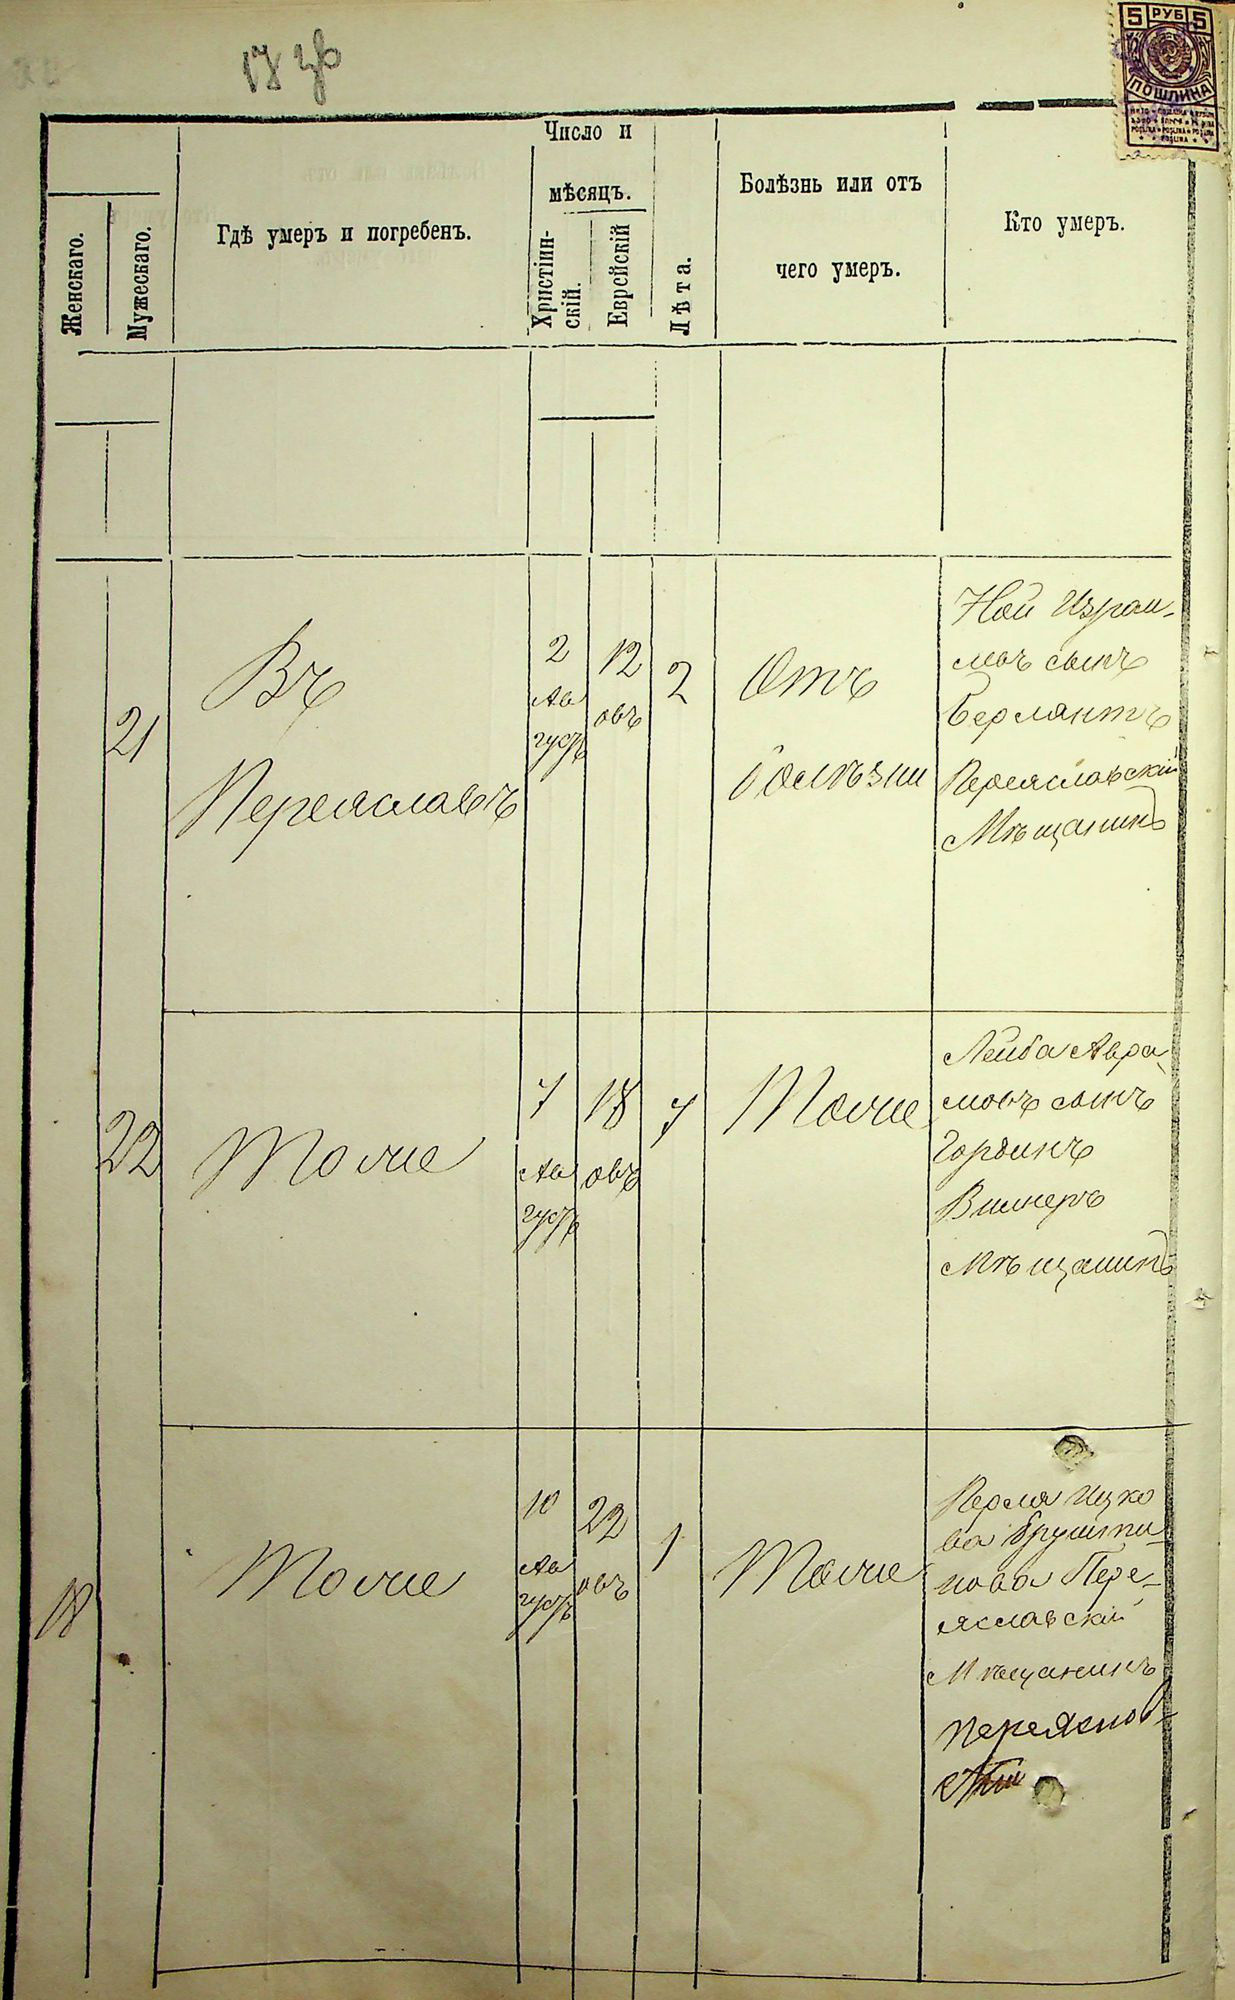 5 РУБ 5
ПОШЛИНА
Число и
мѣсяцъ.
Женскаго.
Мужескаго.
Гдѣ умеръ и погребенъ.
Христіин-
скій.
Еврейскій
Лѣта.
Болѣзнь или отъ
чего умеръ.
Кто умеръ.
21
Въ
Переяславѣ
2
Ав
густъ
12
овъ
2
Отъ
болѣзни
Ной Израи-
левъ сынъ
Берлянтъ
Переяславскій
Мѣщанинъ
22
Тоже
7
Ав
густъ
18
овъ
7
Тоже
Лейба Авра-
мовъ сынъ
Гордикъ
Мѣщанинъ
18
Тоже
10
Ав
густъ
22
овъ
1
Тоже
Перля Ицко
ва
нова Пере-
яславскій
Мѣщанинъ